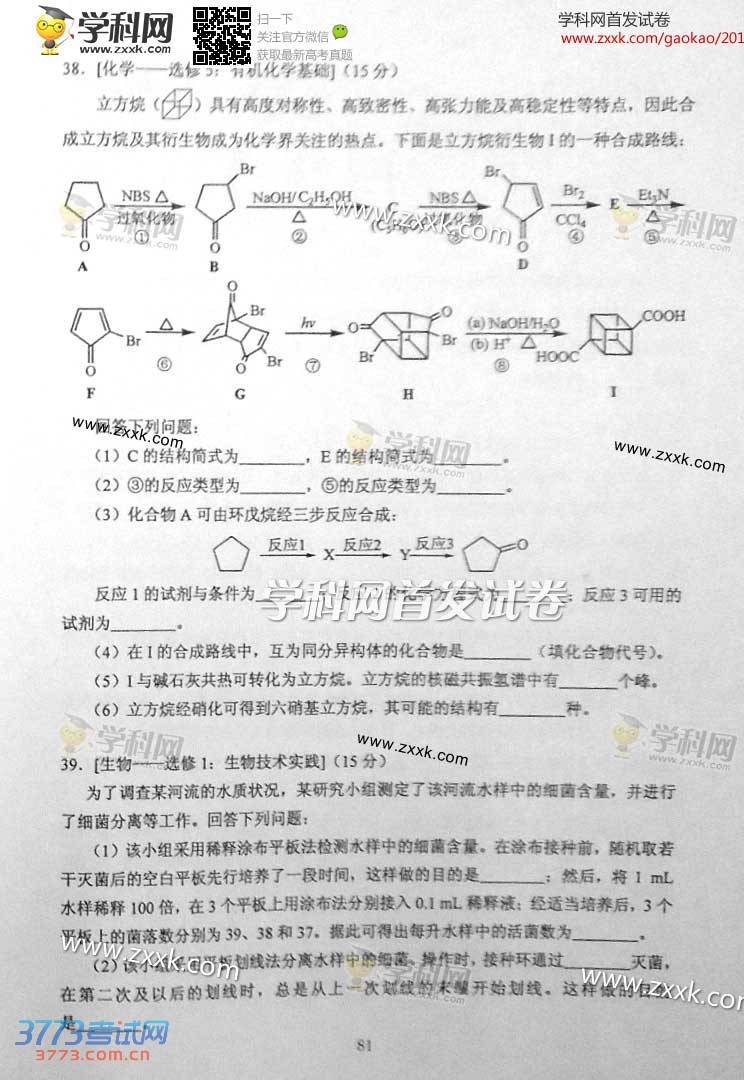 学科网
www.zxxk.com
扫一下
关注官方微信
获取最新高考真题
学科网首发试卷
www.zxxk.com/gaokao/201
38. [化学——选修5：有机化学基础]（15分）
立方烷（）具有高度对称性、高致密性、高张力能及高稳定性等特点，因此合
成立方烷及其衍生物成为化学界关注的热点。下面是立方烷衍生物 I 的一种合成路线：
O A
NBS △ 过氧化物 ①
Br O B
NaOH/ C2H5OH △ ②
C
NBS △ ③
Br O D
Br2 CCl4 ④
E
Et3N △ ⑤
O Br F
△ ⑥
O Br O Br G
hv ⑦
O Br O Br H
(a) NaOH/H2O (b) H+ △ ⑧
COOH HOOC I
学科网
www.zxxk.com
回答下列问题：
（1）C 的结构简式为________，E 的结构简式为________。
（2）③的反应类型为________，⑤的反应类型为________。
（3）化合物 A 可由环戊烷经三步反应合成：
反应1 X 反应2 Y 反应3 O
反应 1 的试剂与条件为________；反应 3 可用的
学科网首发试卷
试剂为________。
（4）在 I 的合成路线中，互为同分异构体的化合物是________（填化合物代号）。
（5）I 与碱石灰共热可转化为立方烷。立方烷的核磁共振氢谱中有________个峰。
（6）立方烷经硝化可得到六硝基立方烷，其可能的结构有________种。
39. [生物——选修 1：生物技术实践]（15 分）
为了调查某河流的水质状况，某研究小组测定了该河流水样中的细菌含量，并进行
了细菌分离等工作。回答下列问题：
（1）该小组采用稀释涂布平板法检测水样中的细菌含量。在涂布接种前，随机取若
干灭菌后的空白平板先行培养了一段时间，这样做的目的是________；然后，将 1 mL
水样稀释 100 倍，在 3 个平板上用涂布法分别接入 0.1 mL 稀释液；经适当培养后，3 个
平板上的菌落数分别为 39、38 和 37。据此可得出每升水样中的活菌数为________。
（2）该小组采用平板划线法分离水样中的细菌。操作时，接种环通过________灭菌，
在第二次及以后的划线时，总是从上一次划线的末端开始划线。这样做的目的
是________。
81
3773考试网
3773.com.cn